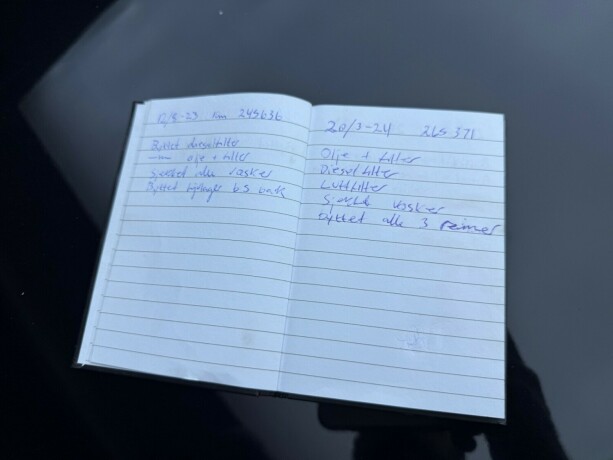 12/3-23 Km 245636
Byttet dieselfilter
-"- olje + filter
Sjekket alle væsker
Byttet b.s bak
20/3-24 265 371
Olje + filter
Dieselfilter
Luftfilter
væsker
Byttet alle 3 reimer